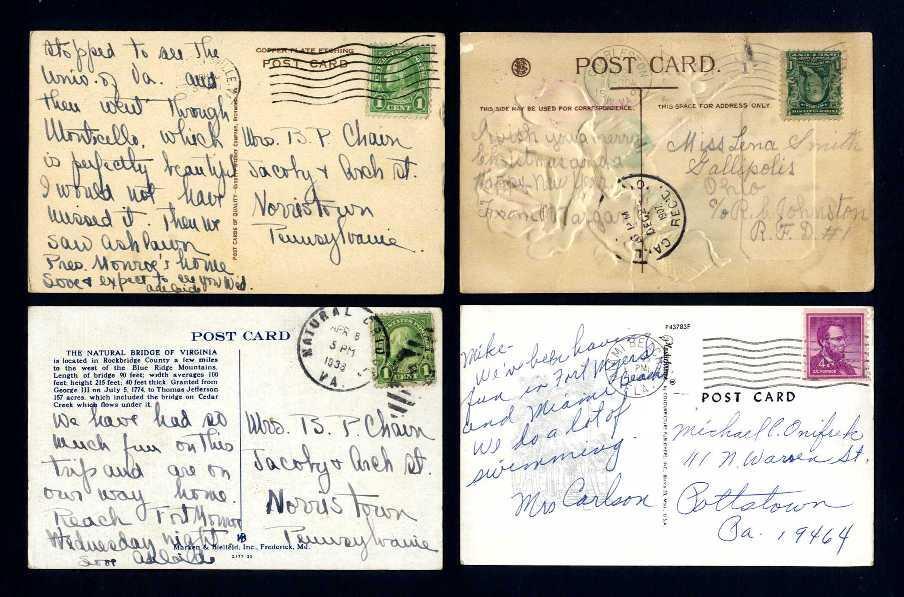 stopped to see the
Univ. of Va. and
then went through
Monticello, which
is perfectly beautiful
I would not have
missed it. Then we
saw Ashlawn
Pres. Monroe's home
Love & expect to see you Wed.
Adelaide
COPPER PLATE ETCHING
POST CARD
1 CENT 1
Mrs. B. P. Chain
Jacoby & Arch St.
Norristown
Pennsylvania
POST CARD.
THIS SIDE MAY BE USED FOR CORRESPONDENCE.
THIS SPACE FOR ADDRESS ONLY.
I wish you a merry
Christmas and a
Happy New Year
Margaret
REC'D.
DEC
1907
Miss Lena Smith
Gallipolis
Ohio
c/o R. C. Johnston
R.F.D. #1
POST CARD
THE NATURAL BRIDGE OF VIRGINIA
is located in Rockbridge County a few miles
to the west of the Blue Ridge Mountains.
Length of bridge 90 feet; width averages 100
feet; height 215 feet; 40 feet thick. Granted from
George III on July 5, 1774, to Thomas Jefferson
157 acres, which included the bridge on Cedar
Creek which flows under it.
We have had so
much fun on this
trip and are on
our way home.
Reach Fort Monroe
Wednesday night
Love Adelaide
NATURAL
APR 8
3 PM
VA.
1 CENT 1
Mrs. B. P. Chain
Jacoby & Arch St.
Norristown
Pennsylvania
Marken & Bielfeld, Inc., Frederick, Md.
P43783F
Mike-
We've been having
fun in Fort Myers
and Miami Beach
We do a lot of
swimming.
Mrs Carlson
PM
FLA.
4¢
POST CARD
Michael C. Onifrek
111 N. Warren St.
Pottstown
Pa. 19464